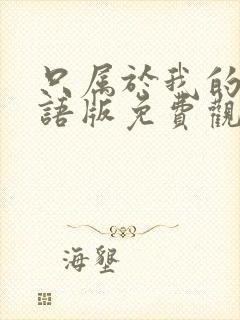 只属於我的
語版免費觀
海墾